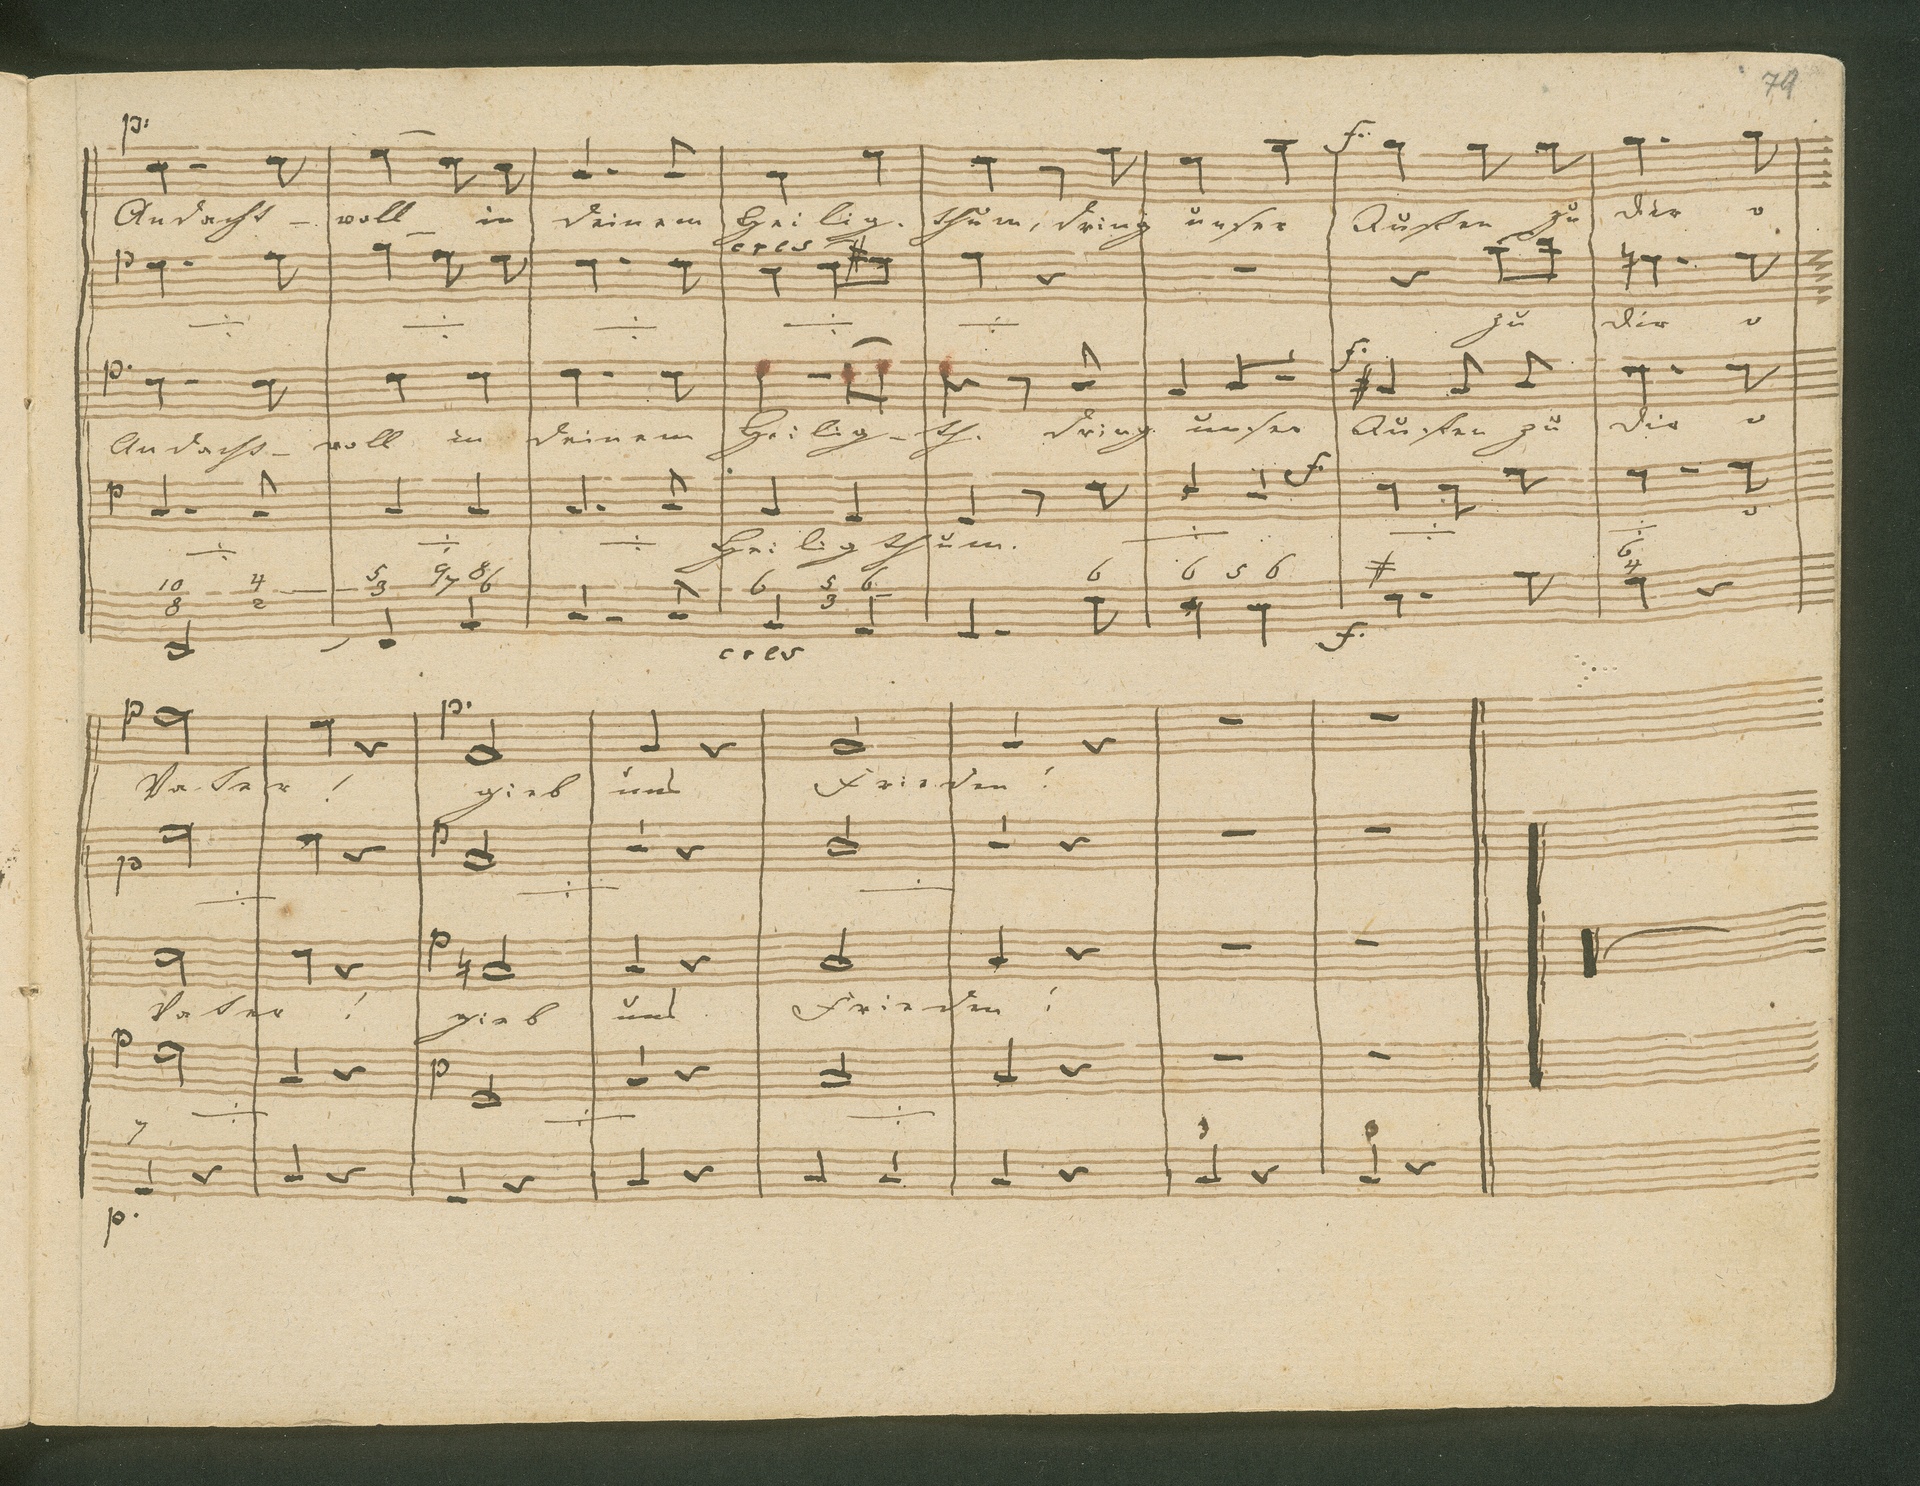 79
p.
f.
Andacht – voll in deinem Heilig. thum, dring unser Rufen zu dir o
cres
p
zu dir o
p.
f.
Andacht – voll in deinem Heilig – th. dring unser Rufen zu dir o
p
f.
o
Heiligthum.
10 4 5 9 7 8 6 6 5 6 6 6 5 6 # 6
8 2 3 3 4
cres f.
p p.
Vater! gieb uns Frieden!
p p
p
Vater! gieb uns Frieden!
p p
7
p.